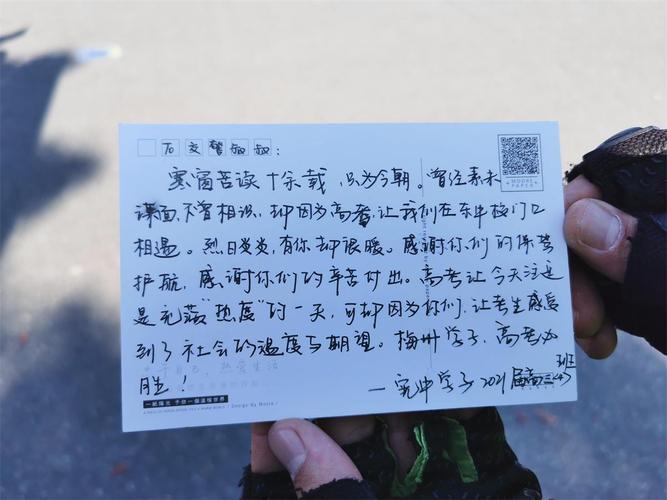 To 交警叔叔:
寒窗苦读十余载,只为今朝。曾经素未
谋面,不曾相识,却因为高考,让我们在东中校门口
相遇。烈日炎炎,有你却很暖。感谢你们的保驾
护航,感谢你们的辛苦付出。高考让今天注定
是充满“热度”的一天,可却因为你们,让考生感受
到了社会的温度与期望。梅州学子,高考必
胜!
MOORE PAPER
一紙陽光 予你一個溫暖世界
Design By Moore